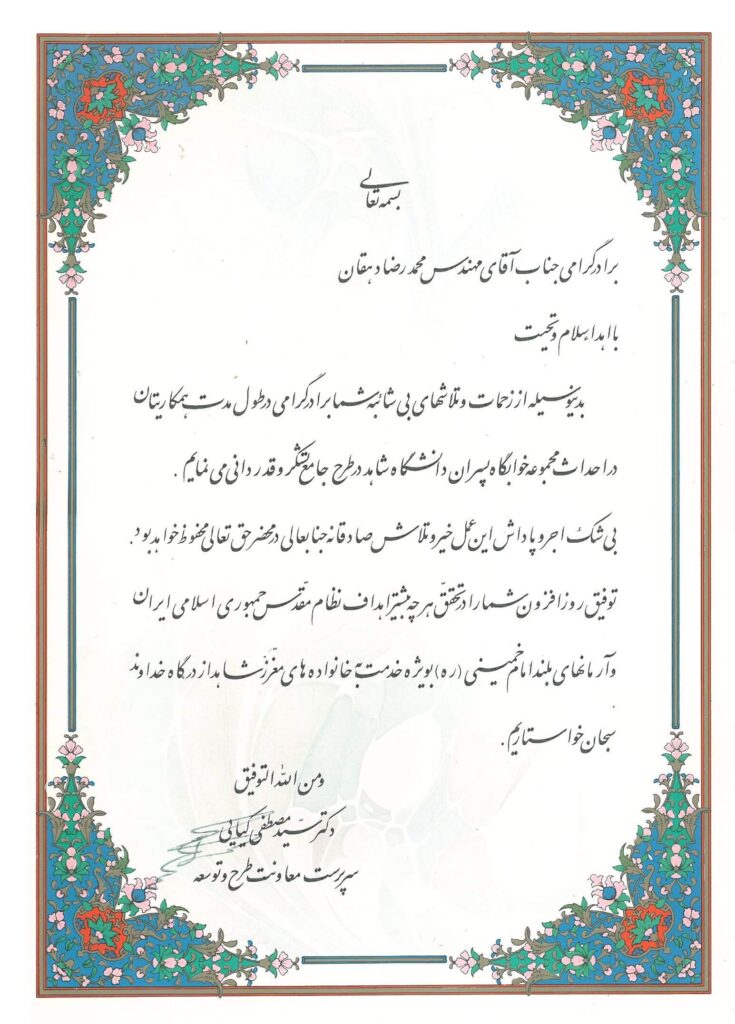 بسمه تعالی
برادر گرامی جناب آقای مهندس محمد رضا دهقان
با اهداء سلام و تحیت
بدینوسیله از زحمات و تلاشهای بی شائبه شما برادر گرامی در طول مدت همکاریتان
در احداث مجموعه خوابگاه پسران دانشگاه شاهد در طرح جامع تشکر و قدردانی می نمایم .
بی شک اجر و پاداش این عمل خیر و تلاش صادقانه جنابعالی در محضر حق تعالی محفوظ خواهد بود .
توفیق روز افزون شما را در تحقق هر چه بیشتر اهداف نظام مقدّس جمهوری اسلامی ایران
و آرمانهای بلند امام خمینی (ره) بویژه خدمت به خانواده های معزّز شاهد از درگاه خداوند
سبحان خواستاریم .
ومن الله التوفیق
دکتر سیّد مصطفی کیایی
سرپرست معاونت طرح و توسعه